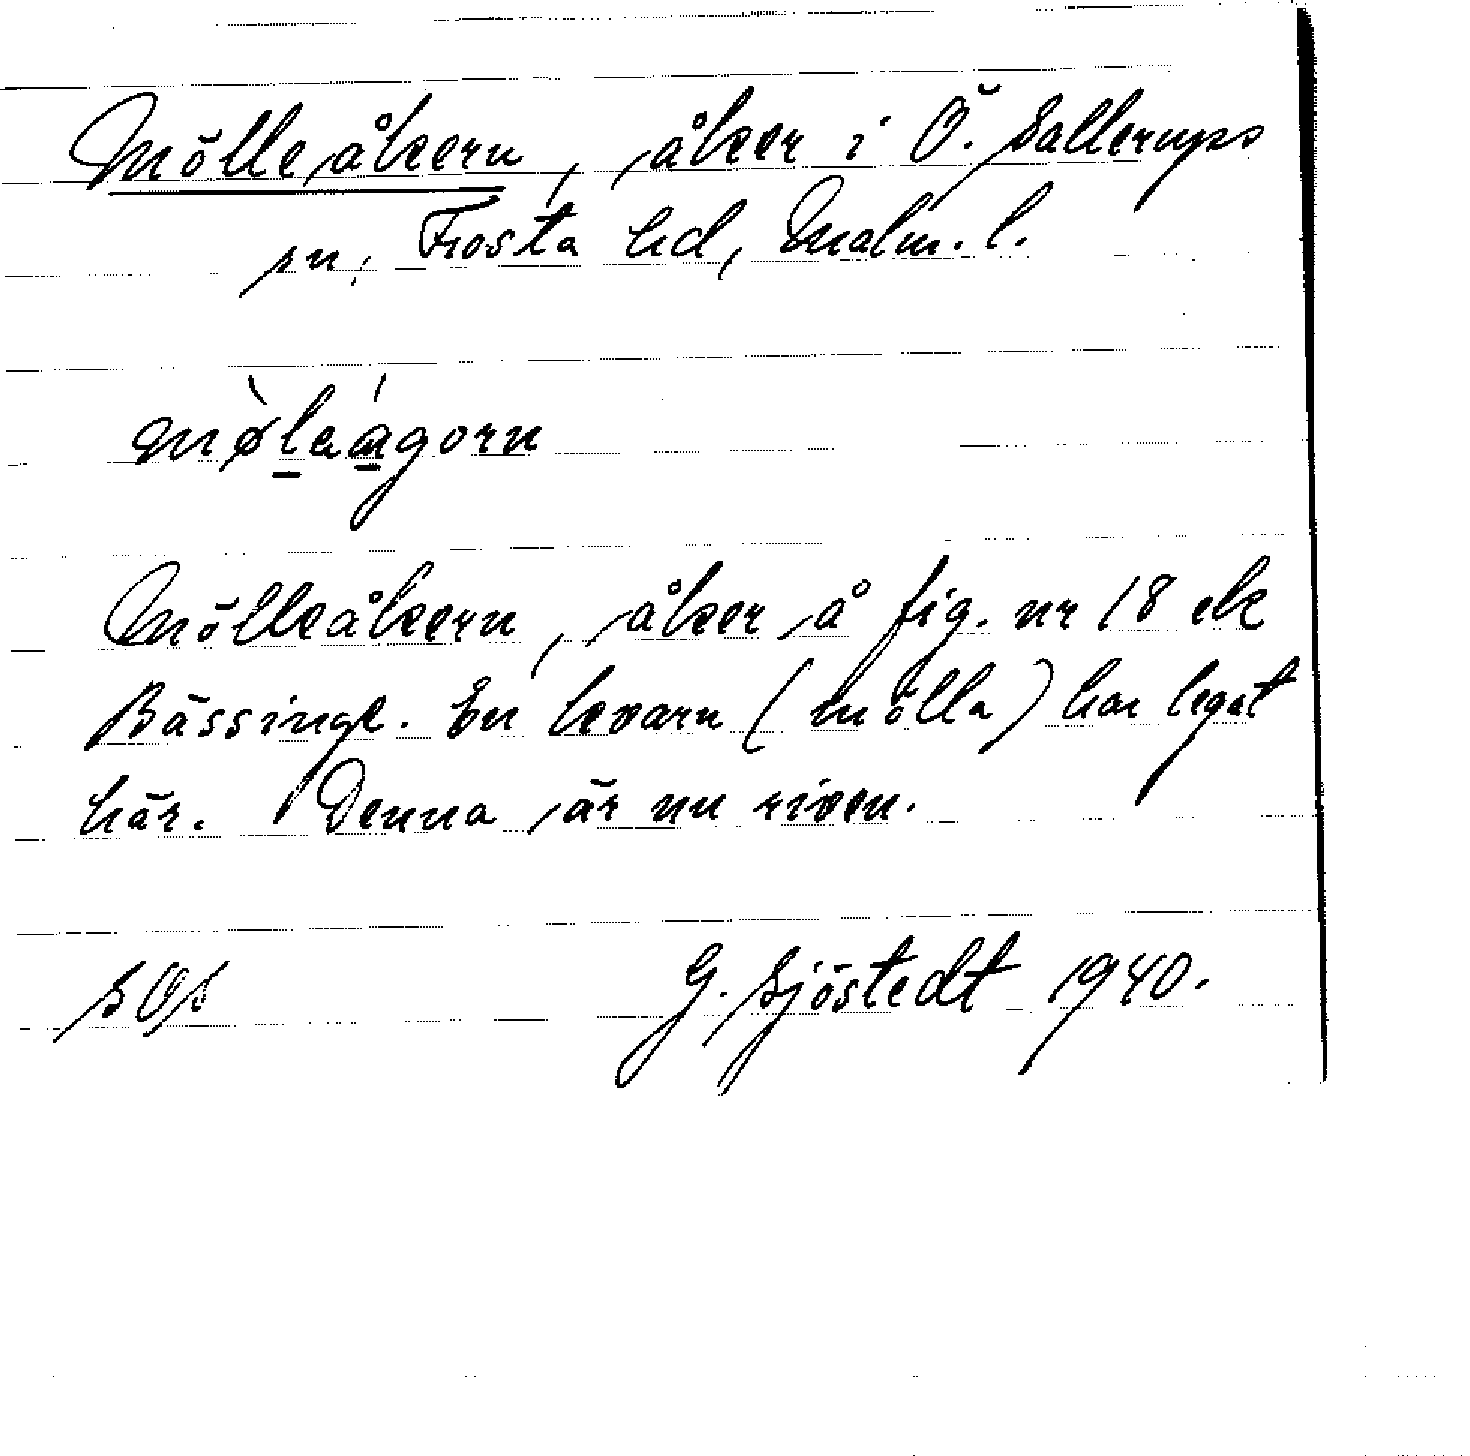 Mölleåkern, åker i Ö. Sallerups
sn, Frosta hd, Malm. l.
mø̀leágorn
Mölleåkern, åker å fig. nr 18 ek
Bässinge. En kvarn (mölla) har legat
här. Denna är nu riven.
G. Sjöstedt 1940.